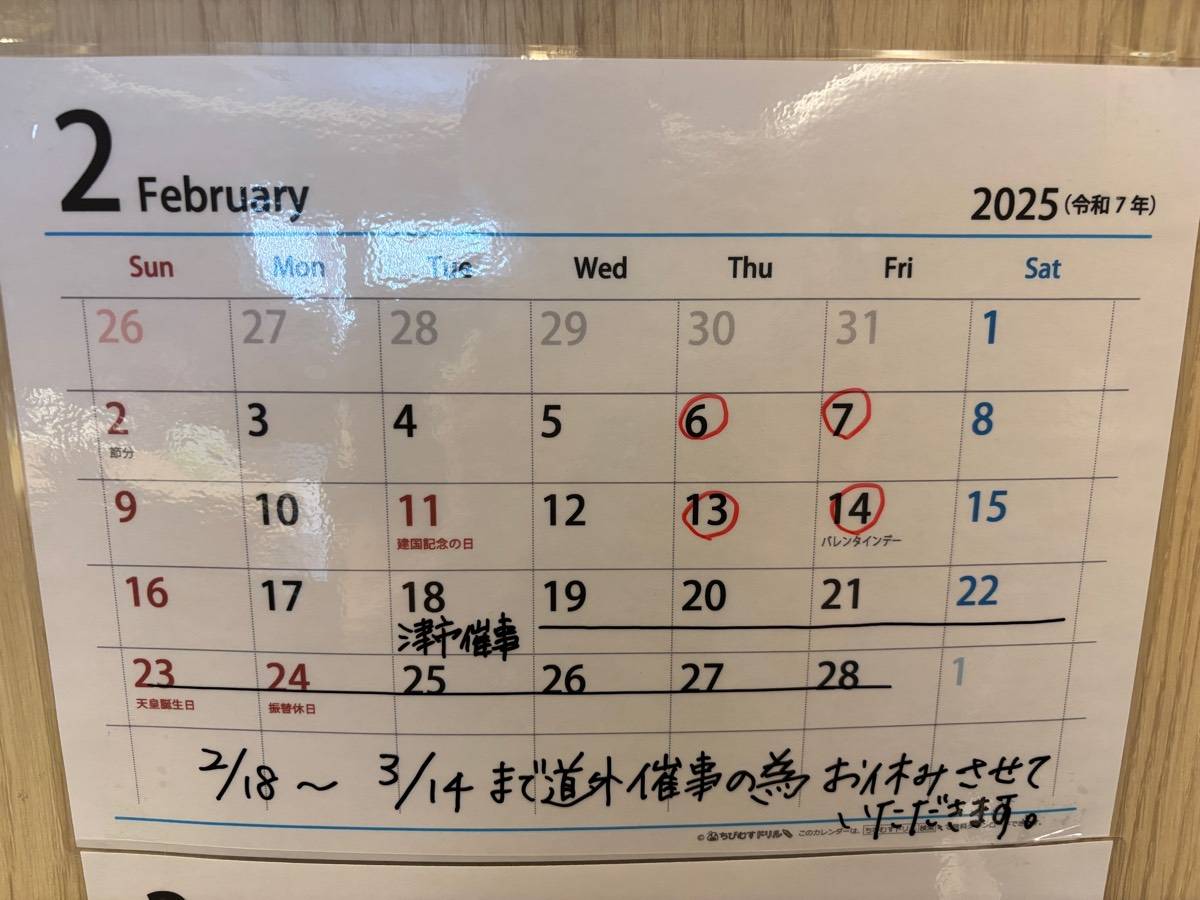 2 February
2025(令和7年)
Sun Mon Tue Wed Thu Fri Sat
26 27 28 29 30 31 1
2 3 4 5 6 7 8
節分
9 10 11 12 13 14 15
建国記念の日 バレンタインデー
16 17 18 19 20 21 22
津市催事
23 24 25 26 27 28 1
天皇誕生日 振替休日
2/18〜3/14まで道外催事の為お休みさせて
いただきます。
©ちびむすドリル このカレンダーは、